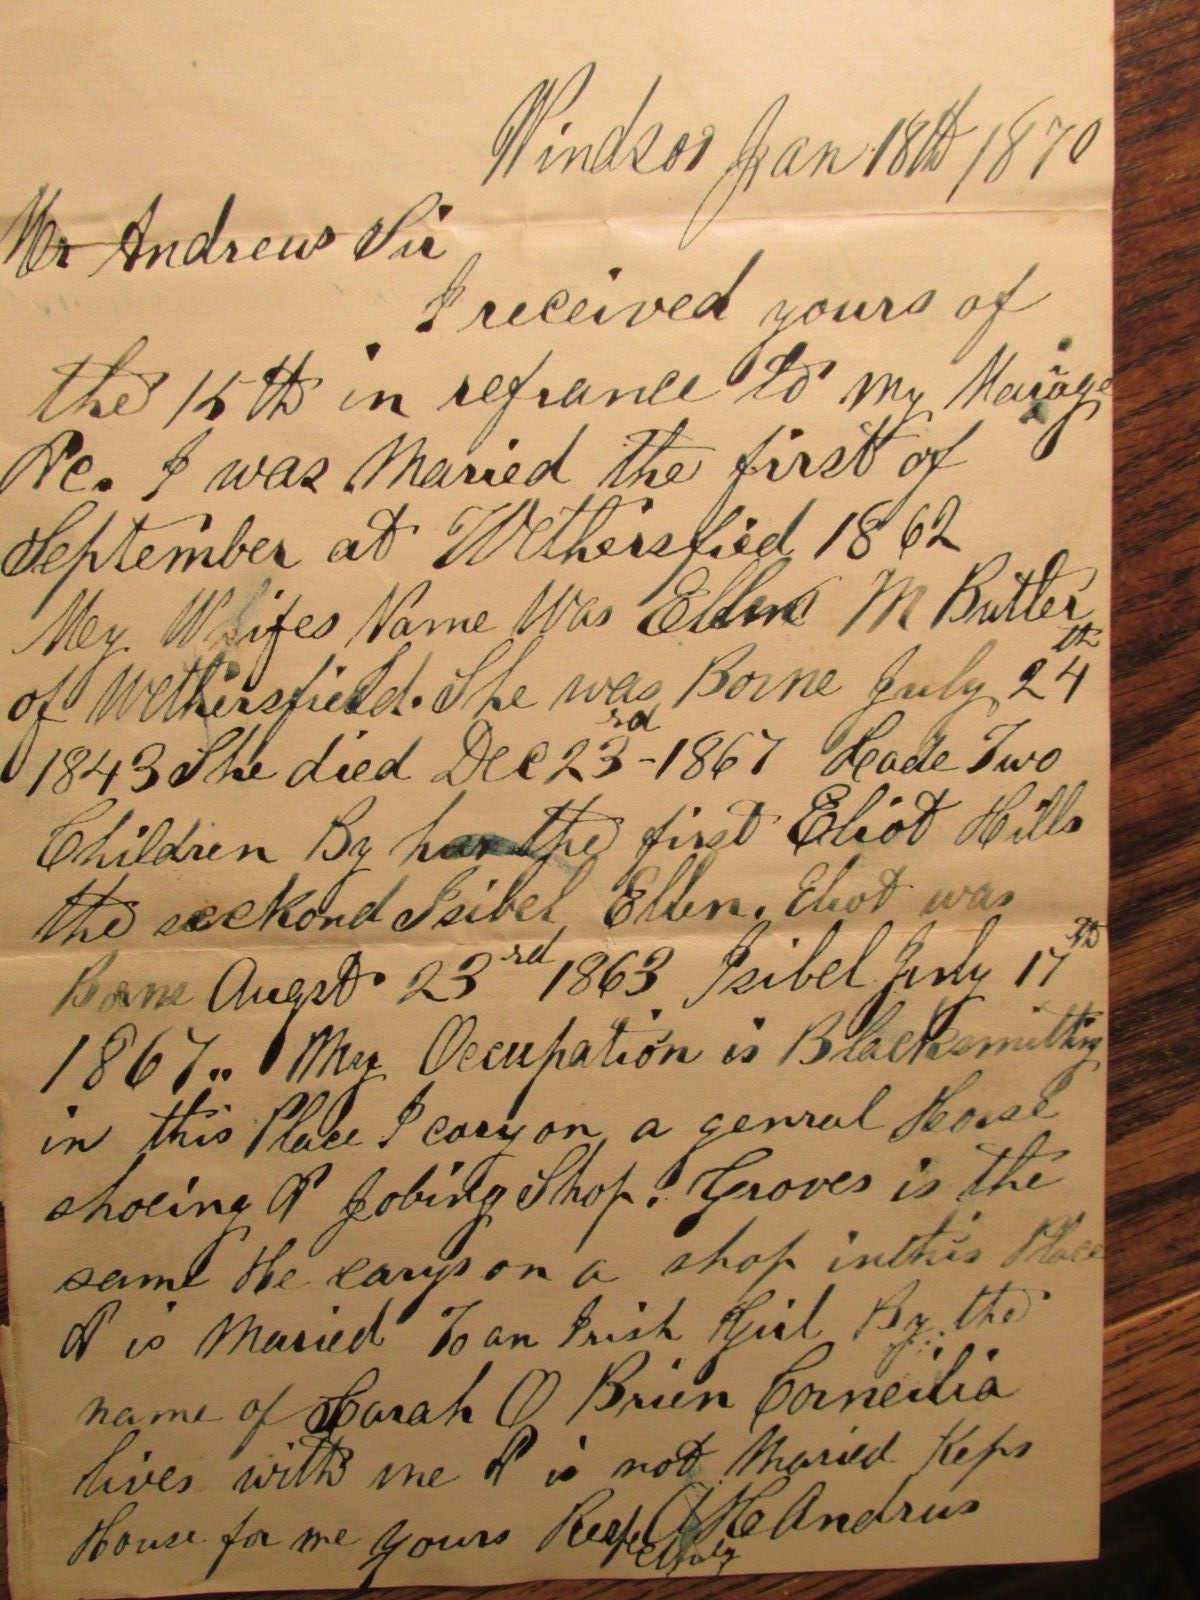 Windsor Jan 18th 1870
Mr Andrews Sir
I received yours of
the 15th in refrance to my Mariage
&c. I was Maried the first of
September at Wethersfied 1862
My Wifes Name Was Ellen M Butler
of Wethersfield. She was Borne July 24th
1843 She died Dec 23rd - 1867 Hade Two
Children By har the first Eliot Hills
the seckond Isibel Ellen. Eliot was
Borne Augst 23rd 1863 Isibel July 17th
1867.. My Occupation is Blacksmithing
in this Place I cary on a genral Horse
shoeing & Jobing Shop. Groves is the
same He carys on a shop in this Place
& is Maried To an Irish Girl By the
name of Sarah O Brien Corneilia
lives with me & is not Maried Keps
House for me yours Respectfuly H Andrus